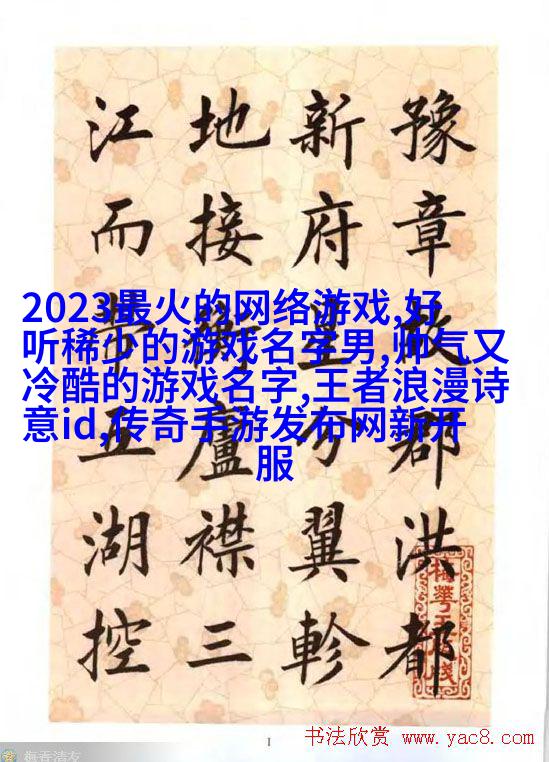 豫章故郡洪都
新府星分翼軫
地接衡廬襟三
江而帶五湖控
2023最火的网络游戏,好
听稀少的游戏名字男,帅气又
冷酷的游戏名字,王者浪漫诗
意id,传奇手游发布网新开
服
1
书法欣赏 www.yac8.com